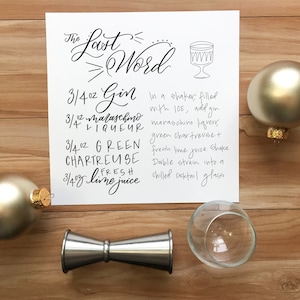 The Last
Word
3/4 oz Gin
3/4 oz maraschino
LIQUEUR
3/4 oz GREEN
CHARTREUSE
3/4 oz FRESH
lime juice
In a shaker filled
with ice, add gin
maraschino liqueur,
green chartreuse +
fresh lime juice. Shake
Doble strain into a
chilled cocktail glass